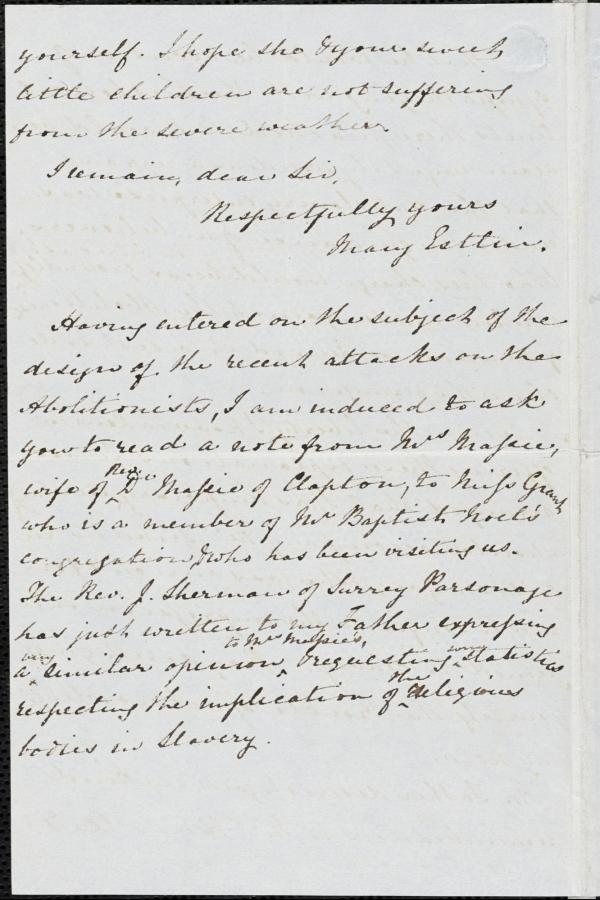 yourself. I hope she & your sweet
little children are not suffering
from the severe weather.
I remain, dear Sir,
Respectfully yours
Mary Estlin.
Having entered on the subject of the
design of the recent attacks on the
Abolitionists, I am induced to ask
you to read a note from Mrs Massie,
wife of Revd Dr Massie of Clapton, to Miss Grant
who is a member of Mr Baptist Noel's
congregation & who has been visiting us.
The Rev. J. Sherman of Surrey Parsonage
has just written to my Father expressing
a very similar opinion to Mrs Massie's, & requesting some statistics
respecting the implication of the religious
bodies in Slavery.